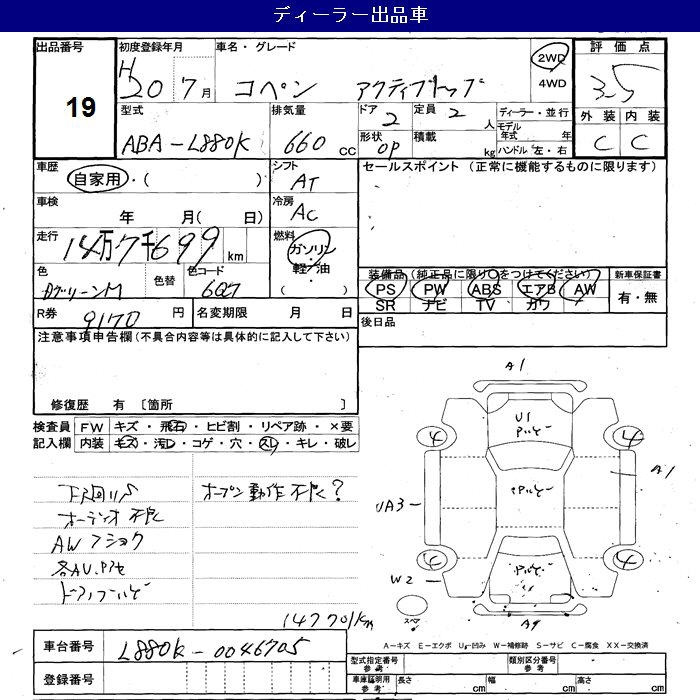 ディーラー出品車
出品番号 初度登録年月 車名・グレード 2WD 評価点
19 H20 7月 コペン アクティブトップ 4WD 3.5
型式 排気量 ドア 定員 ディーラー・並行 外装 内装
ABA-L880K 660cc 2 2人 モデル年式 年 C C
形状 OP 積載 kg ハンドル 左・右
車歴 シフト セールスポイント (正常に機能するものに限ります)
自家用・( ) AT
車検 冷房
年 月( 日) AC
走行 燃料
14万7千699km ガソリン・軽油・( )
色 色替 色コード 装備品(純正品に限り○をつけてください) 新車保証書
DグリーンM 6Q7 PS PW ABS エアB AW 有・無
SR ナビ TV カワ
R券 9170円 名変期限 月 日 後日品
注意事項申告欄(不具合内容等は具体的に記入して下さい)
修復歴 有 〔箇所 〕
検査員 FW キズ・飛石・ヒビ割・リペア跡・×要
記入欄 内装 キズ・汚レ・コゲ・穴・スレ・キレ・破レ
オープン動作不良?
オーディオ不良
AW
147701km
A1
U1
4 4
A1
UA3
4
W2
スペア
A9
A=キズ E=エクボ U=凹み W=補修跡 S=サビ C=腐食 XX=交換済
車台番号 L880K-0046705
型式指定番号 参考 類別区分番号 参考
登録番号
車庫証明用 参考 長さ cm 幅 cm 高さ cm